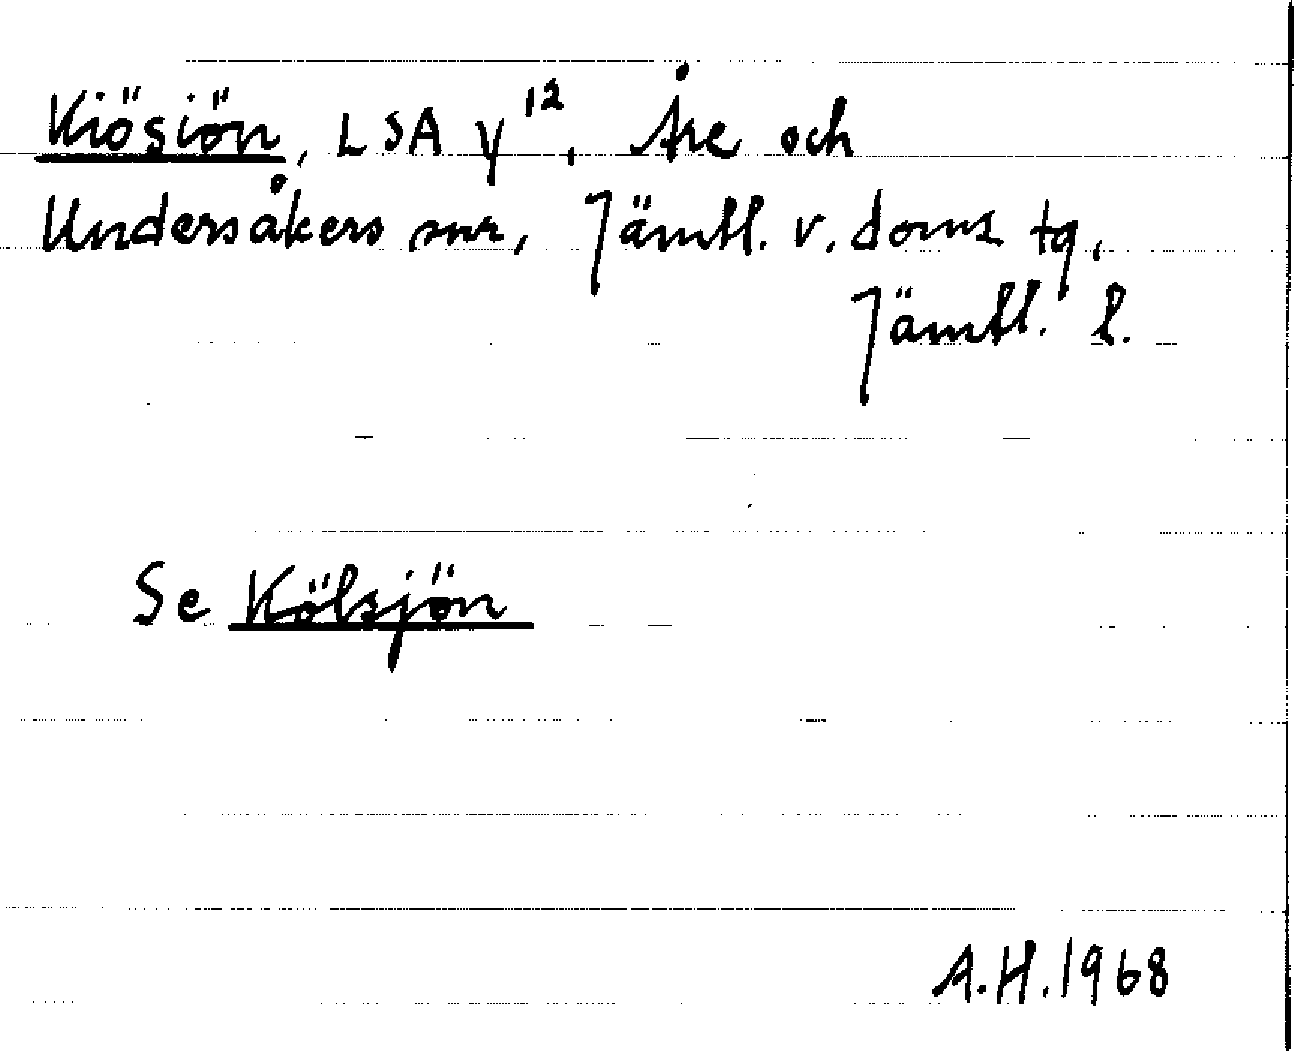 Kiösiön, LSA y¹², Åre och
Undersåkers snr, Jämtl. v. doms tg,
Jämtl. l.
Se Kölsjön
A.H. 1968